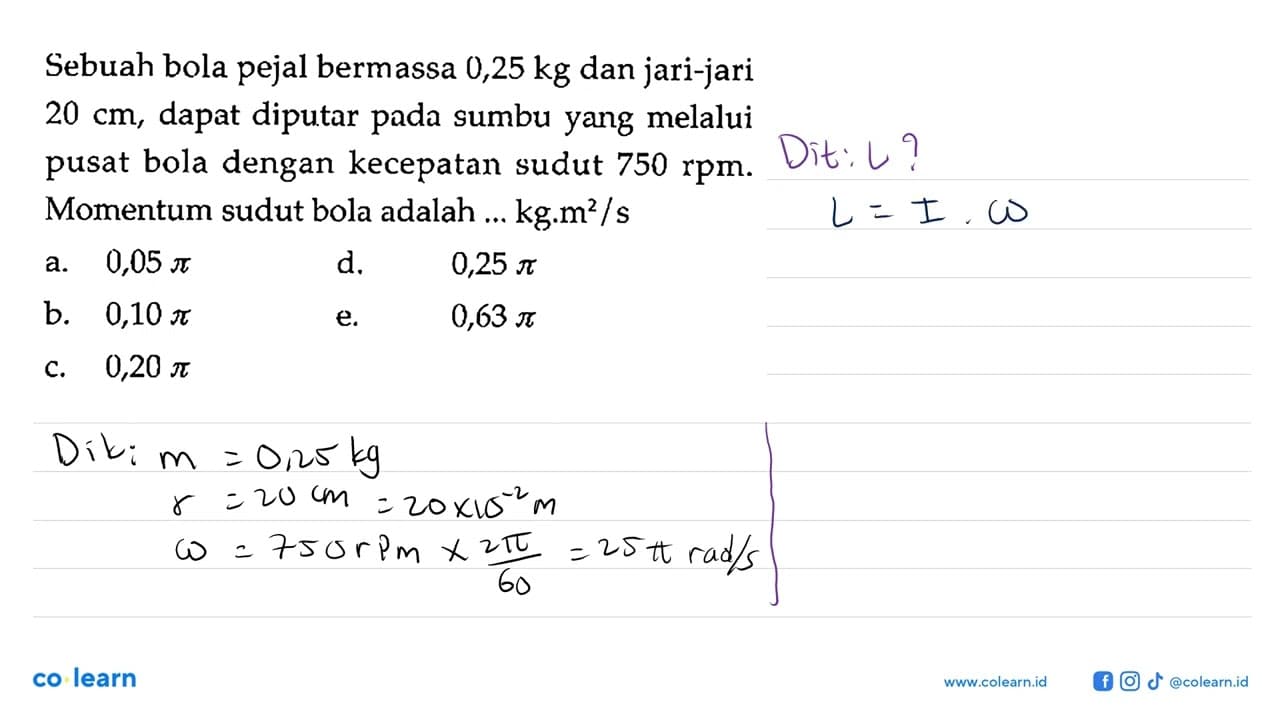 Sebuah bola pejal bermassa 0,25 kg dan jari-jari
20 cm, dapat diputar pada sumbu yang melalui
pusat bola dengan kecepatan sudut 750 rpm.
Momentum sudut bola adalah ... kg.m²/s
a. 0,05 π d. 0,25 π
b. 0,10 π e. 0,63 π
c. 0,20 π
Dit: L?
L = I . ω
Dik: m = 0,25 kg
r = 20 cm = 20 x 10⁻² m
ω = 750 rpm x 2π/60 = 25 π rad/s
co learn
www.colearn.id
@colearn.id